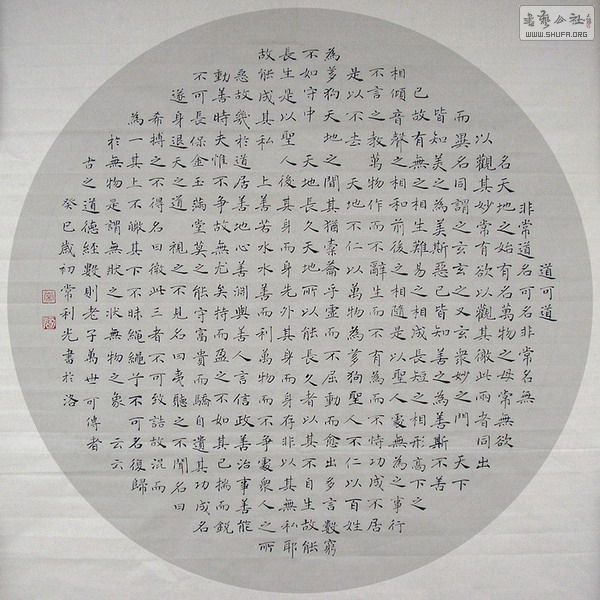 書藝公社
WWW.SHUFA.ORG
道可道
非常道名可名非常名無
名天地之始有名萬物之母常無欲
以觀其妙常有欲以觀其徼此兩者同出
而異名同謂之玄玄之又玄衆妙之門 天下
皆知美之為美斯惡已皆知善之為善斯不善
已 故有無之相生難易之相成長短之相形高下之
相傾音聲之相和前後之相隨是以聖人處無為之事行
不言之教 萬物作而不辭生而不有為而不恃功成不居
是以不去 天地不仁以萬物為芻狗聖人不仁以百姓
為芻狗天地之間其猶橐籥乎虛而不屈動而愈出多言數窮
不如守中 天地長久天地所以能長久者以其不自生故能
長生是以聖人後其身而身先外其身而身存非以其無私耶
故能成其私 上善若水水善而利萬物而不爭處衆人之所
惡故幾於道居善地心善淵與善人言信政善治事善能
動善時夫惟不爭故無尤矣持而盈之不如其已揣而銳
不可長保金玉滿堂莫之能守富貴而驕自遺其功成名
遂身退天之道 視之不見名曰夷聽之不聞名曰
希搏之不得名曰微此三者不可致詰故混而
為一其上不皦其下不昧繩繩子不可名復歸
於無物是謂無狀之狀無物之象 云云
古之道德經數則老子萬世可傳者
癸巳歲初常利光書於洛